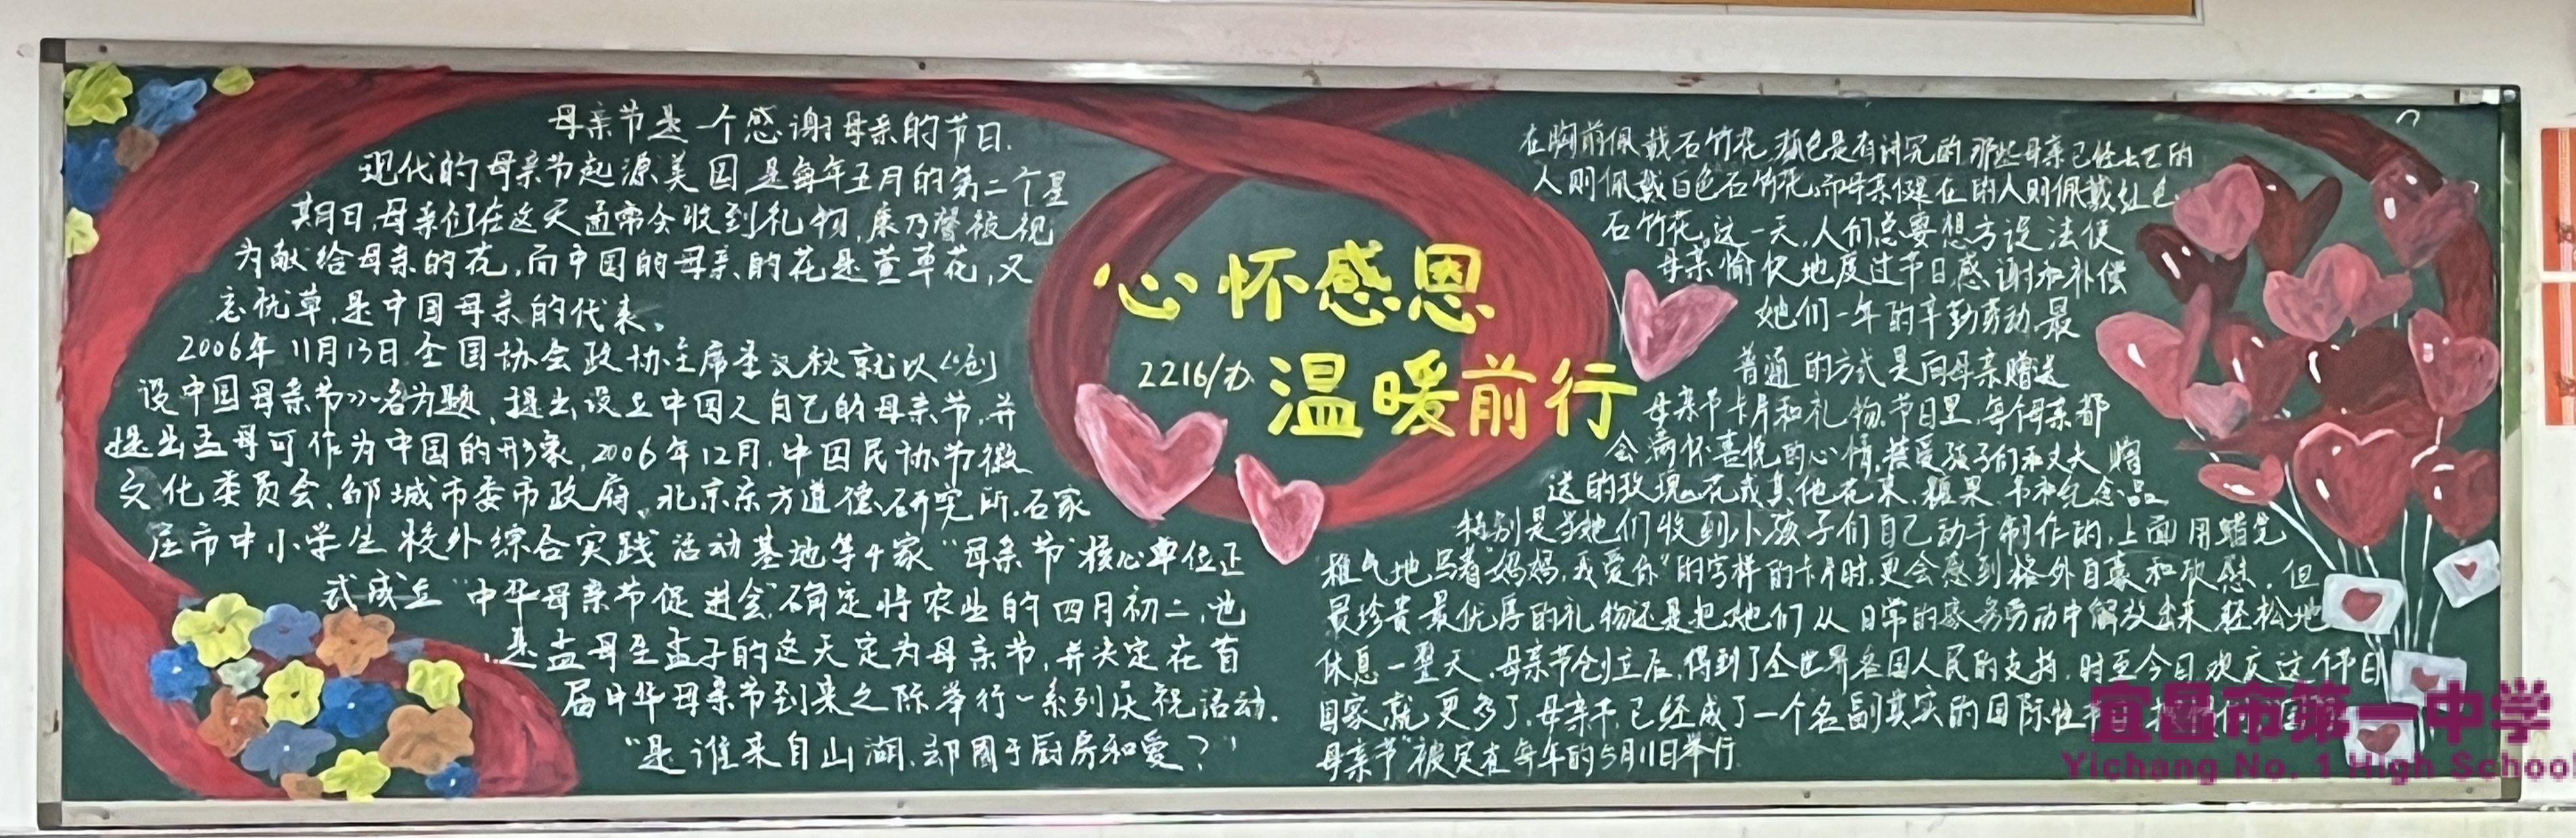 母亲节是一个感谢母亲的节日.
现代的母亲节起源美国是每年五月的第二个星
期日,母亲们在这天通常会收到礼物,康乃馨被视
为献给母亲的花,而中国的母亲的花是萱草花,又
忘忧草,是中国母亲的代表。
2006年11月13日全国协会政协主席李汉秋就以《创
设中国母亲节》名为题,提出设立中国人自己的母亲节,并
提出孟母可作为中国的形象,2006年12月,中国民协节徽
文化委员会、邹城市委市政府、北京东方道德研究所、石家
庄市中小学生校外综合实践活动基地等4家“母亲节”核心单位正
式成立“中华母亲节促进会”确定将农业的四月初二,也
是孟母生孟子的这天定为母亲节,并决定在首
届中华母亲节到来之际举行一系列庆祝活动.
“是谁来自山湖,却囿于厨房和爱?”
心怀感恩
2216/力 温暖前行
在胸前佩戴石竹花,颜色是有讲究的,那些母亲已经去世的
人则佩戴白色石竹花,而母亲健在的人则佩戴红色
石竹花。这一天,人们总要想方设法使
母亲愉快地度过节日感谢和补偿
她们一年的辛勤劳动,最
普通的方式是向母亲赠送
母亲节卡片和礼物.节日里,每个母亲都
会满怀喜悦的心情,接受孩子们和丈夫赠
送的玫瑰花或其他花束、糖果、书和纪念品
特别是当她们收到小孩子们自己动手制作的,上面用蜡笔
稚气地写着“妈妈,我爱你”的字样的卡片时,更会感到格外自豪和欣慰.但
最珍贵最优厚的礼物还是把她们从日常的家务劳动中解放出来,轻松地
休息一整天.母亲节创立后,得到了全世界各国人民的支持.时至今日欢庆这个节日
国家就更多了,母亲节已经成了一个名副其实的国际性节日
母亲节”被定在每年的5月11日举行.
宜昌市第一中学
Yichang No. 1 High School